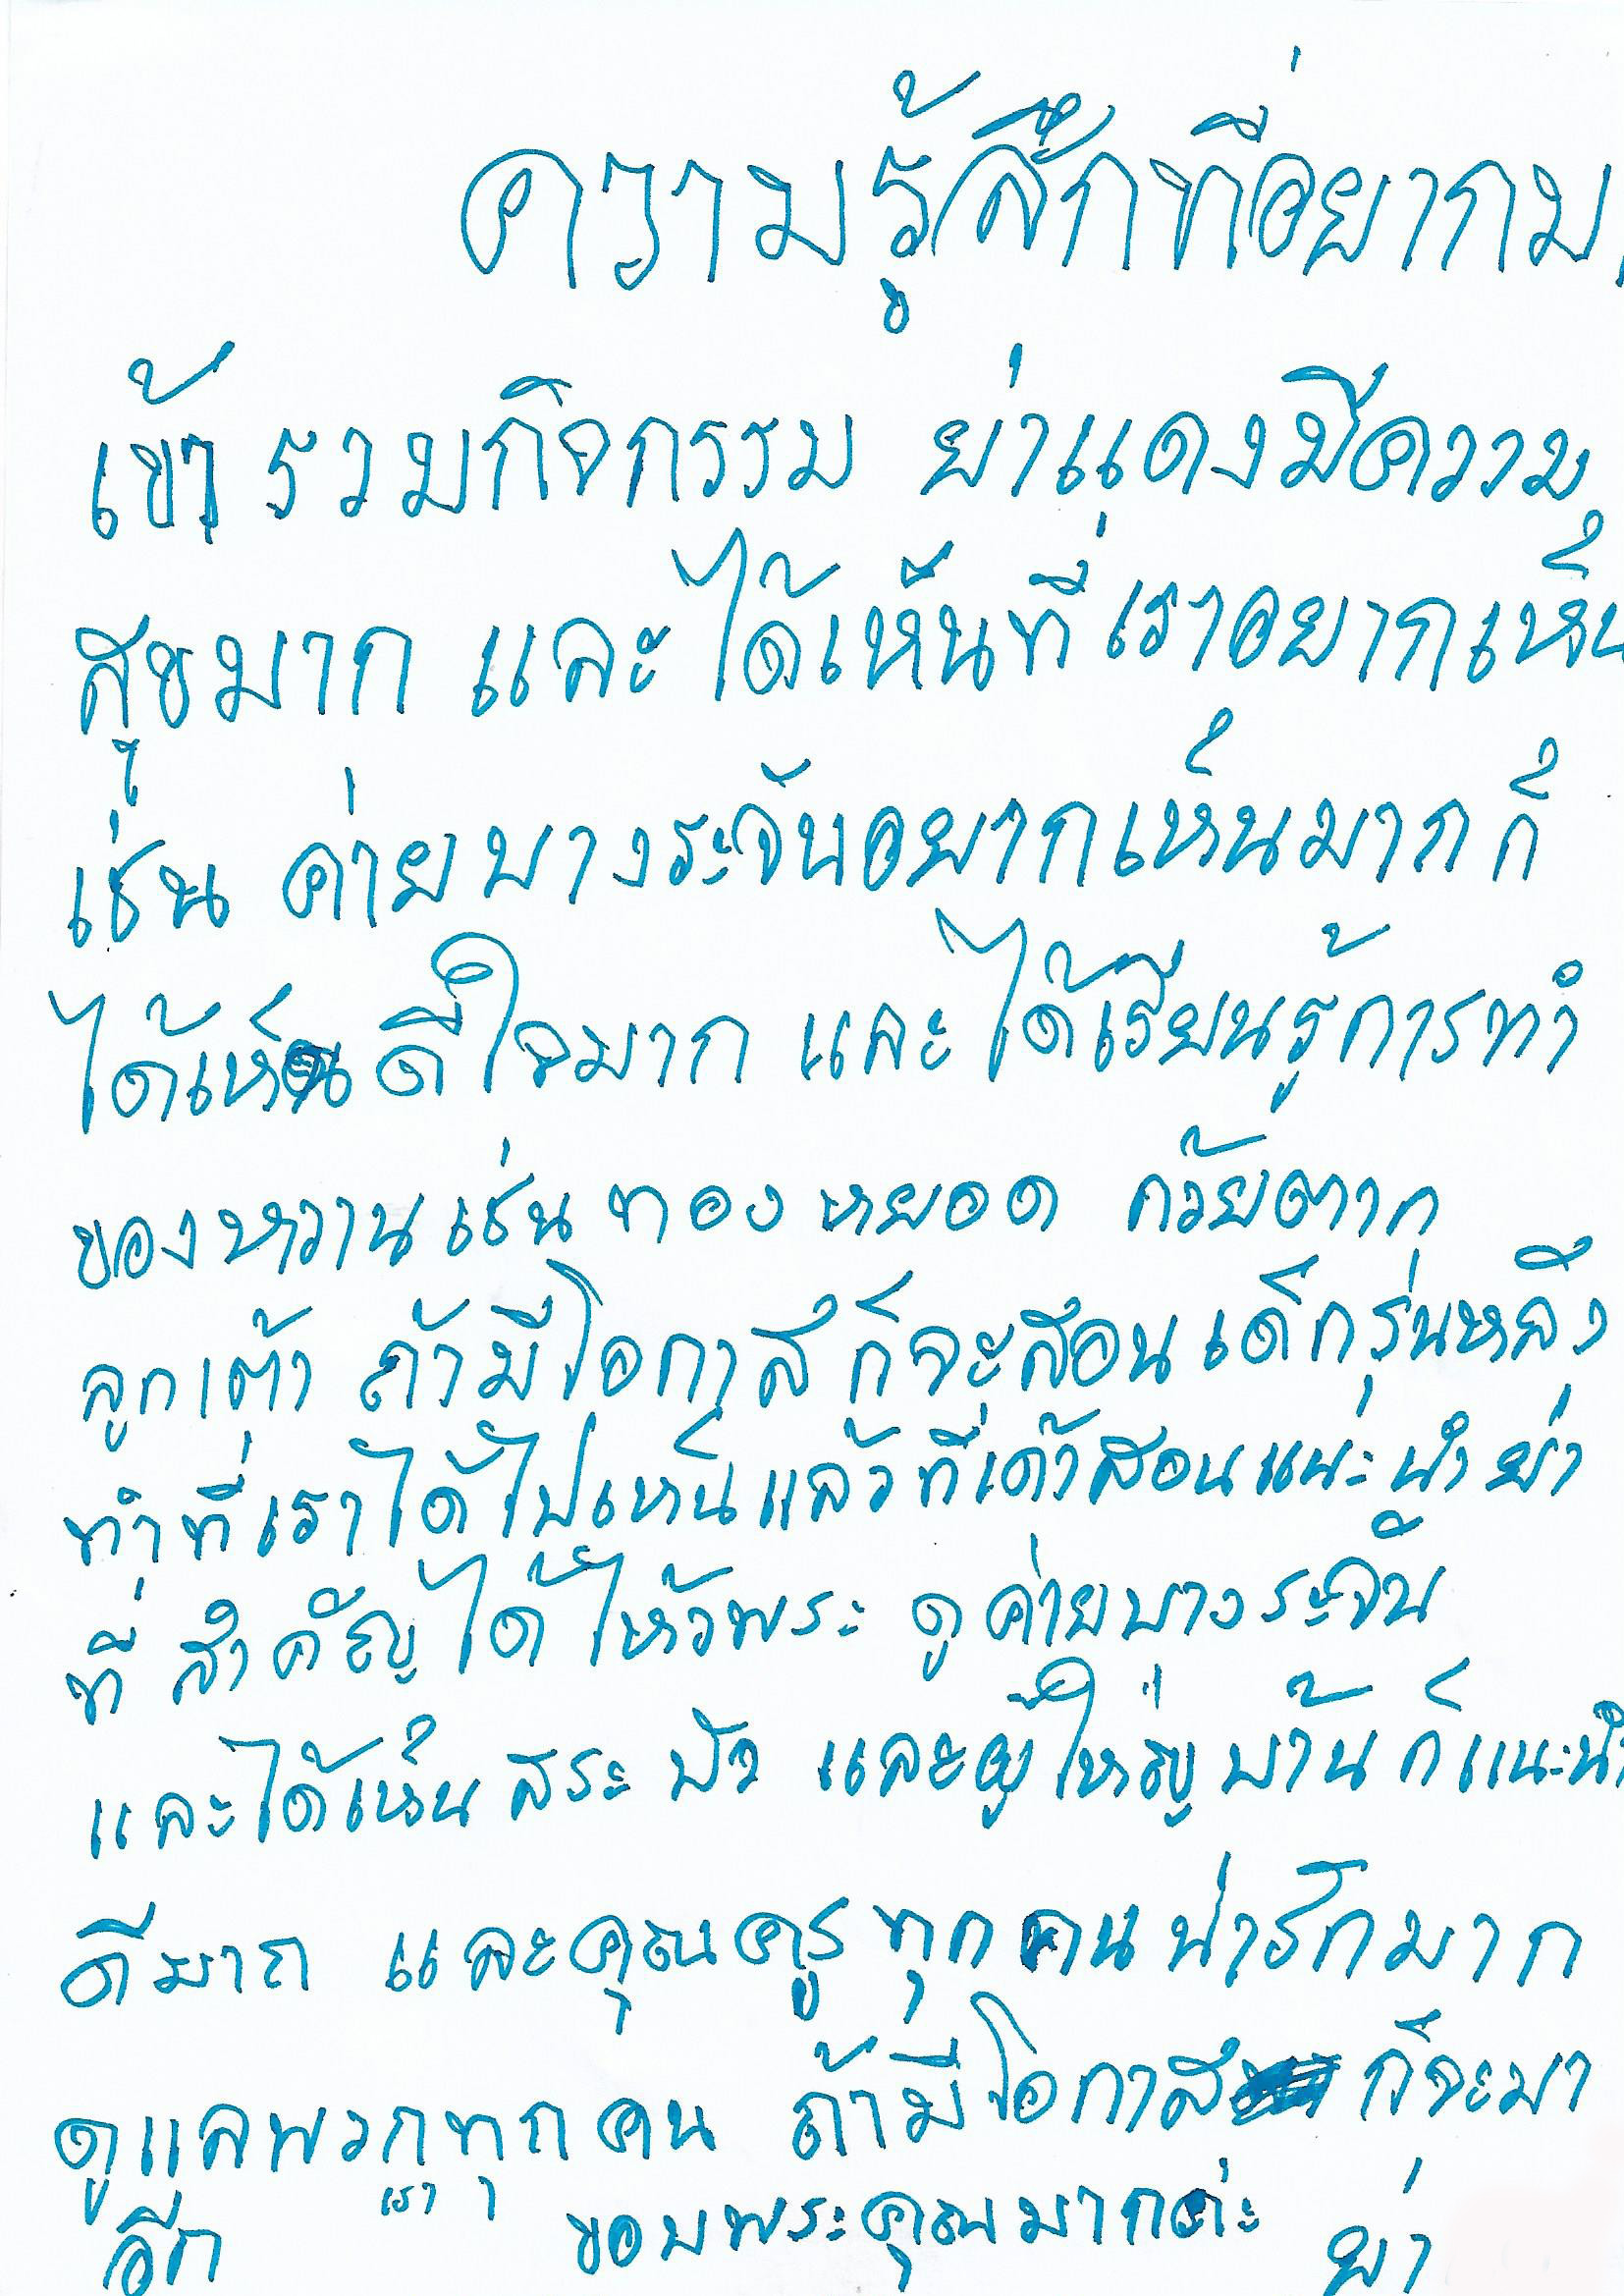 ความรู้สึกที่อยากมา
เข้ารวมกิจกรรม ย่าแดงมีความ
สุขมาก และได้เห็นที่เราอยากเห็น
เช่น ค่ายบางระจันอยากเห็นมากก็
ได้เห็น ดีใจมาก และได้เรียนรู้การทำ
ของหวานเช่น ทองหยอด ก้วยตาก
ลูกเต้า ถ้ามีโอกาสก็จะสอนเด็กรุ่นหลัง
ทำที่เราได้ไปเห็นแล้วที่เค้าสอนแนะนำย่า
ที่สำคัญได้ไห้วพระ ดูค่ายบางระจัน
และได้เห็นสระบัว และผู้ใหญ่บ้านก็แนะนำ
ดีมาก และคุณครูทุกคนน่ารักมาก
ดูแลพวกเราทุกคน ถ้ามีโอกาสก็จะมา
อีก ขอบพระคุณมากค่ะ ย่า